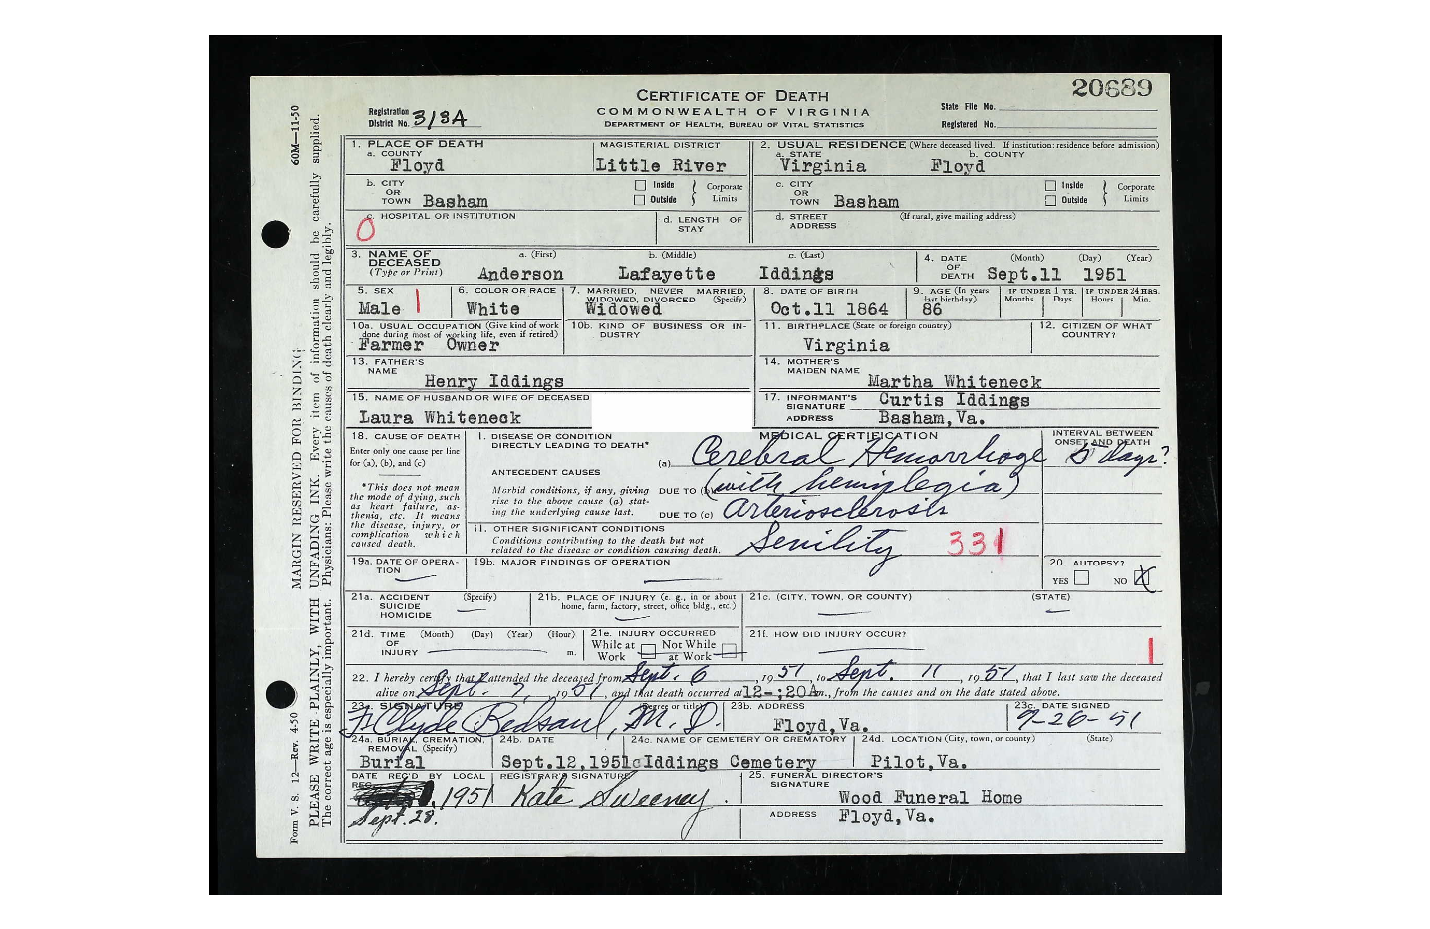 20689
CERTIFICATE OF DEATH
COMMONWEALTH OF VIRGINIA
DEPARTMENT OF HEALTH, BUREAU OF VITAL STATISTICS
Registration District No. 318A
State File No.
Registered No.
60M—11-50
MARGIN RESERVED FOR BINDING
PLEASE WRITE PLAINLY, WITH UNFADING INK. Every item of information should be carefully supplied.
The correct age is especially important. Physicians: Please write the causes of death clearly and legibly.
Form V. S. 12—Rev. 4-50
1. PLACE OF DEATH
a. COUNTY Floyd
MAGISTERIAL DISTRICT Little River
2. USUAL RESIDENCE (Where deceased lived. If institution: residence before admission)
a. STATE Virginia
b. COUNTY Floyd
b. CITY OR TOWN Basham
Inside Outside Corporate Limits
c. CITY OR TOWN Basham
Inside Outside Corporate Limits
c. HOSPITAL OR INSTITUTION
0
d. LENGTH OF STAY
d. STREET ADDRESS (If rural, give mailing address)
3. NAME OF DECEASED (Type or Print)
a. (First) Anderson
b. (Middle) Lafayette
c. (Last) Iddings
4. DATE OF DEATH (Month) (Day) (Year) Sept.11 1951
5. SEX Male 1
6. COLOR OR RACE White
7. MARRIED, NEVER MARRIED, WIDOWED, DIVORCED (Specify) Widowed
8. DATE OF BIRTH Oct.11 1864
9. AGE (In years last birthday) 86
IF UNDER 1 YR. Months Days
IF UNDER 24 HRS. Hours Min.
10a. USUAL OCCUPATION (Give kind of work done during most of working life, even if retired) Farmer Owner
10b. KIND OF BUSINESS OR INDUSTRY
11. BIRTHPLACE (State or foreign country) Virginia
12. CITIZEN OF WHAT COUNTRY?
13. FATHER'S NAME Henry Iddings
14. MOTHER'S MAIDEN NAME Martha Whiteneck
15. NAME OF HUSBAND OR WIFE OF DECEASED Laura Whiteneck
17. INFORMANT'S SIGNATURE Curtis Iddings
ADDRESS Basham,Va.
18. CAUSE OF DEATH
Enter only one cause per line for (a), (b), and (c)
*This does not mean the mode of dying, such as heart failure, asthenia, etc. It means the disease, injury, or complication which caused death.
MEDICAL CERTIFICATION
INTERVAL BETWEEN ONSET AND DEATH
I. DISEASE OR CONDITION DIRECTLY LEADING TO DEATH*
(a) Cerebral Hemorrhage 5 days?
ANTECEDENT CAUSES
Morbid conditions, if any, giving rise to the above cause (a) stating the underlying cause last.
DUE TO (b) (with hemiplegia)
DUE TO (c) Arteriosclerosis
II. OTHER SIGNIFICANT CONDITIONS
Conditions contributing to the death but not related to the disease or condition causing death.
Senility 331
19a. DATE OF OPERATION
19b. MAJOR FINDINGS OF OPERATION
20. AUTOPSY?
YES NO X
21a. ACCIDENT SUICIDE HOMICIDE (Specify)
21b. PLACE OF INJURY (e. g., in or about home, farm, factory, street, office bldg., etc.)
21c. (CITY, TOWN, OR COUNTY) (STATE)
21d. TIME OF INJURY (Month) (Day) (Year) (Hour) m.
21e. INJURY OCCURRED
While at Work Not While at Work
21f. HOW DID INJURY OCCUR?
1
22. I hereby certify that I attended the deceased from Sept. 6, 1951, to Sept. 11, 1951, that I last saw the deceased
alive on Sept. 7, 1951, and that death occurred at 12-:20A m., from the causes and on the date stated above.
23a. SIGNATURE (Degree or title) Clyde Bedsaul, M.D.
23b. ADDRESS Floyd,Va.
23c. DATE SIGNED 9-26-51
24a. BURIAL, CREMATION, REMOVAL (Specify) Burial
24b. DATE Sept.12,1951
24c. NAME OF CEMETERY OR CREMATORY Iddings Cemetery
24d. LOCATION (City, town, or county) (State) Pilot,Va.
DATE REC'D BY LOCAL REG. , 1951
Sept. 28.
REGISTRAR'S SIGNATURE Kate Sweeney.
25. FUNERAL DIRECTOR'S SIGNATURE Wood Funeral Home
ADDRESS Floyd,Va.